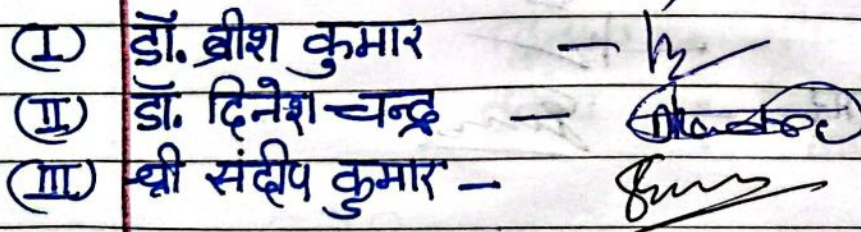 (I) डॉ. ब्रीश कुमार -
(II) डॉ. दिनेश चन्द्र -
(III) श्री संदीप कुमार -